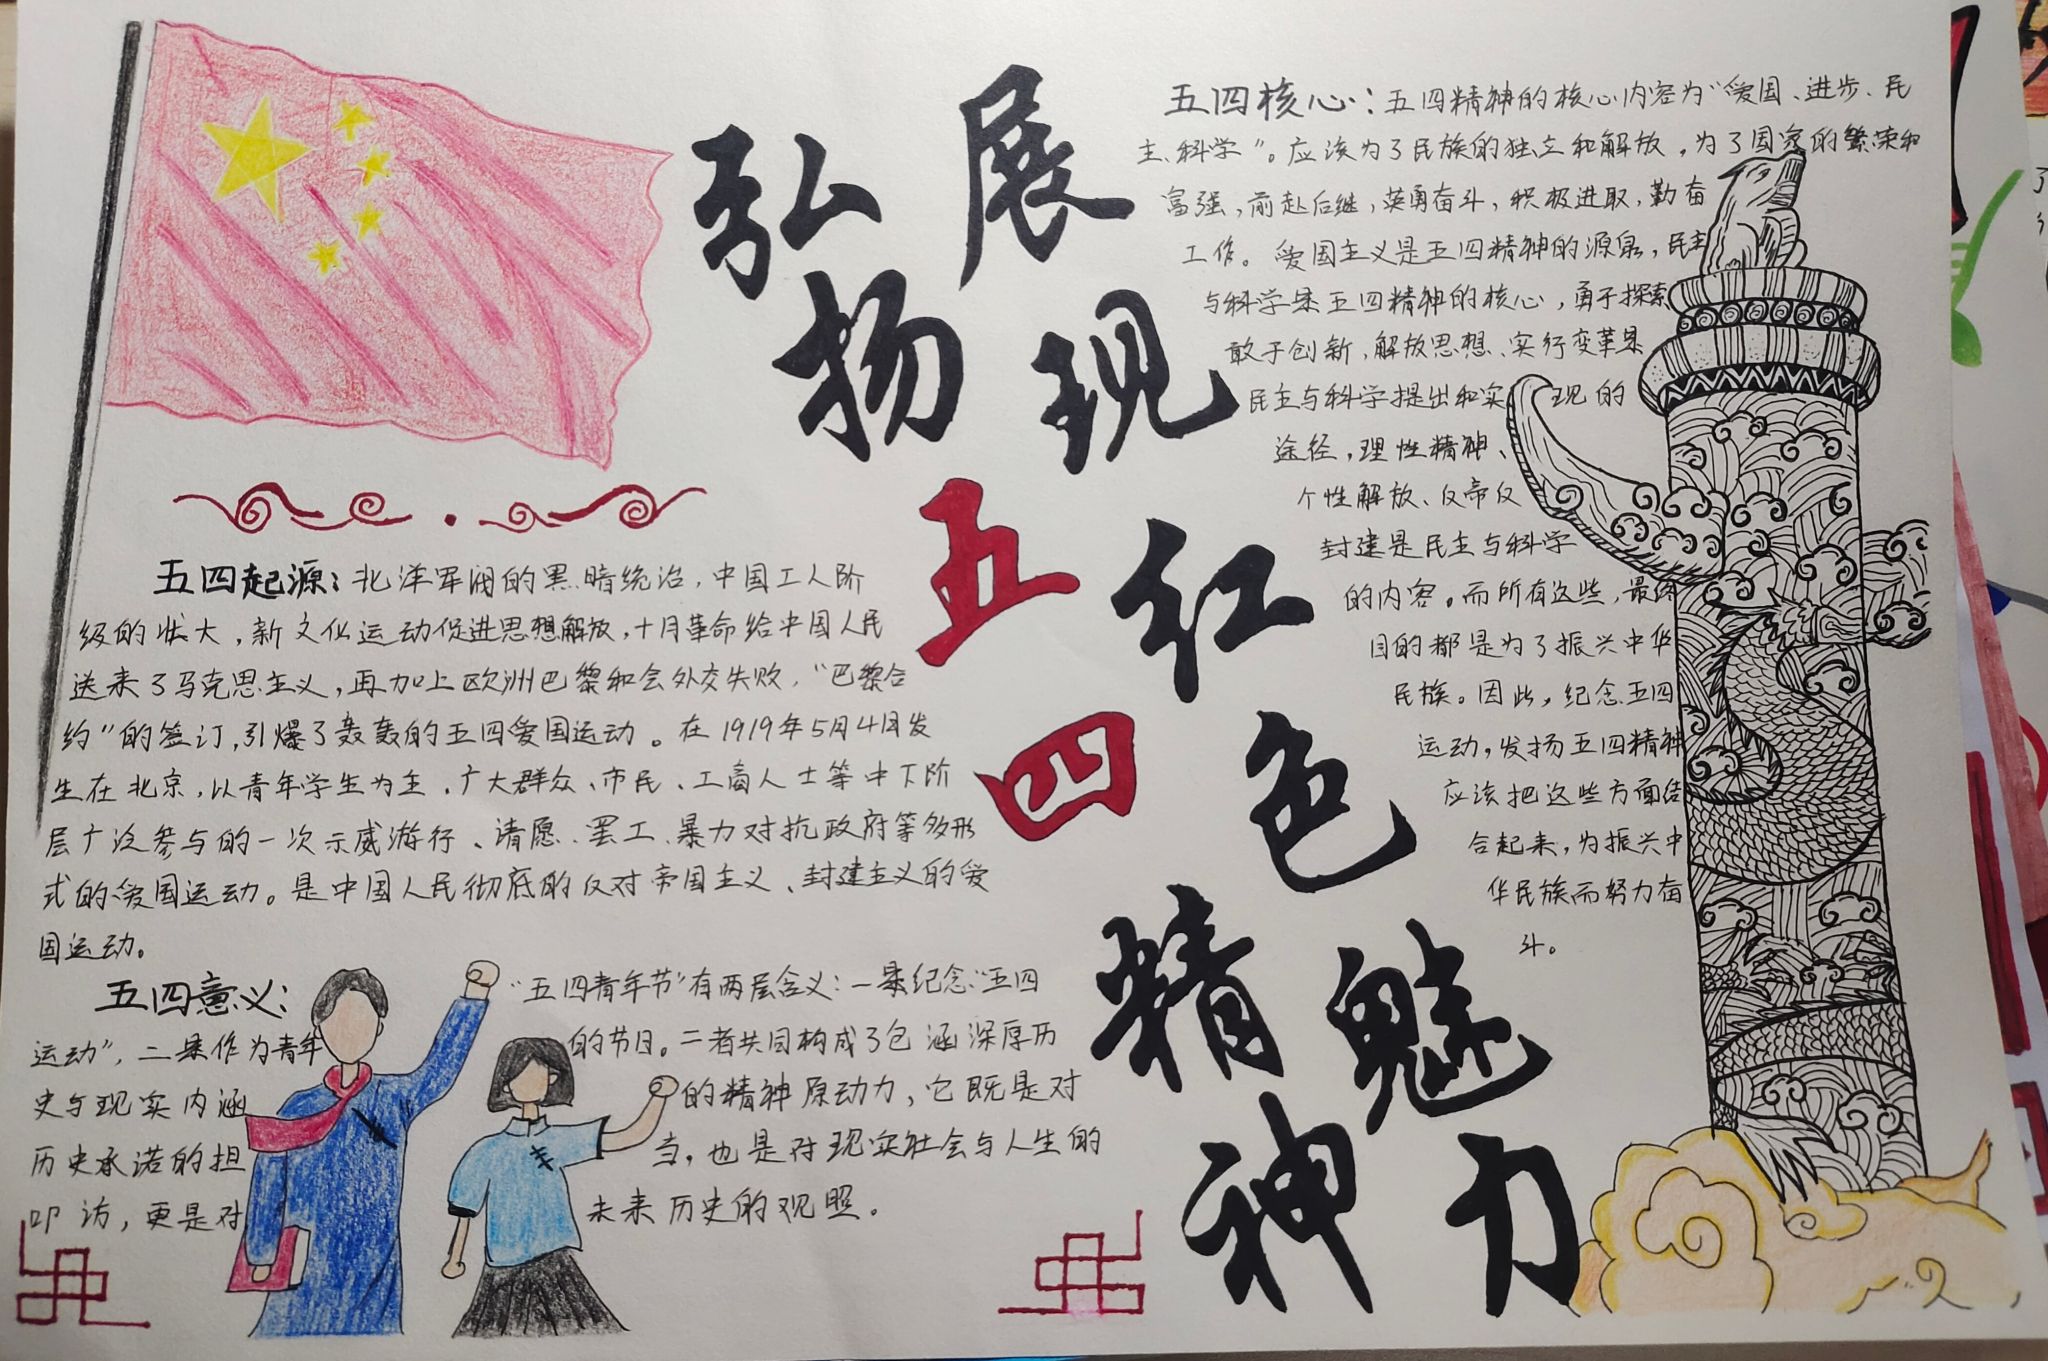 弘扬五四精神
展现红色魅力
五四起源：北洋军阀的黑暗统治，中国工人阶
级的壮大，新文化运动促进思想解放，十月革命给中国人民
送来了马克思主义，再加上欧洲巴黎和会外交失败，“巴黎合
约”的签订，引爆了轰轰的五四爱国运动。在1919年5月4日发
生在北京，以青年学生为主，广大群众、市民、工商人士等中下阶
层广泛参与的一次示威游行、请愿、罢工、暴力对抗政府等多形
式的爱国运动。是中国人民彻底的反对帝国主义、封建主义的爱
国运动。
五四意义：“五四青年节”有两层含义：一是纪念“五四
运动”，二是作为青年的节日。二者共同构成了包涵深厚历
史与现实内涵的精神原动力，它既是对
历史承诺的担当，也是对现实社会与人生的
叩访，更是对未来历史的观照。
五四核心：五四精神的核心内容为“爱国、进步、民
主、科学”。应该为了民族的独立和解放，为了国家的繁荣和
富强，前赴后继，英勇奋斗，积极进取，勤奋
工作。爱国主义是五四精神的源泉，民主
与科学是五四精神的核心，勇于探索
敢于创新，解放思想、实行变革是
民主与科学提出和实现的
途径，理性精神、
个性解放、反帝反
封建是民主与科学
的内容。而所有这些，最终
目的都是为了振兴中华
民族。因此，纪念五四
运动，发扬五四精神
应该把这些方面结
合起来，为振兴中
华民族而努力奋
斗。